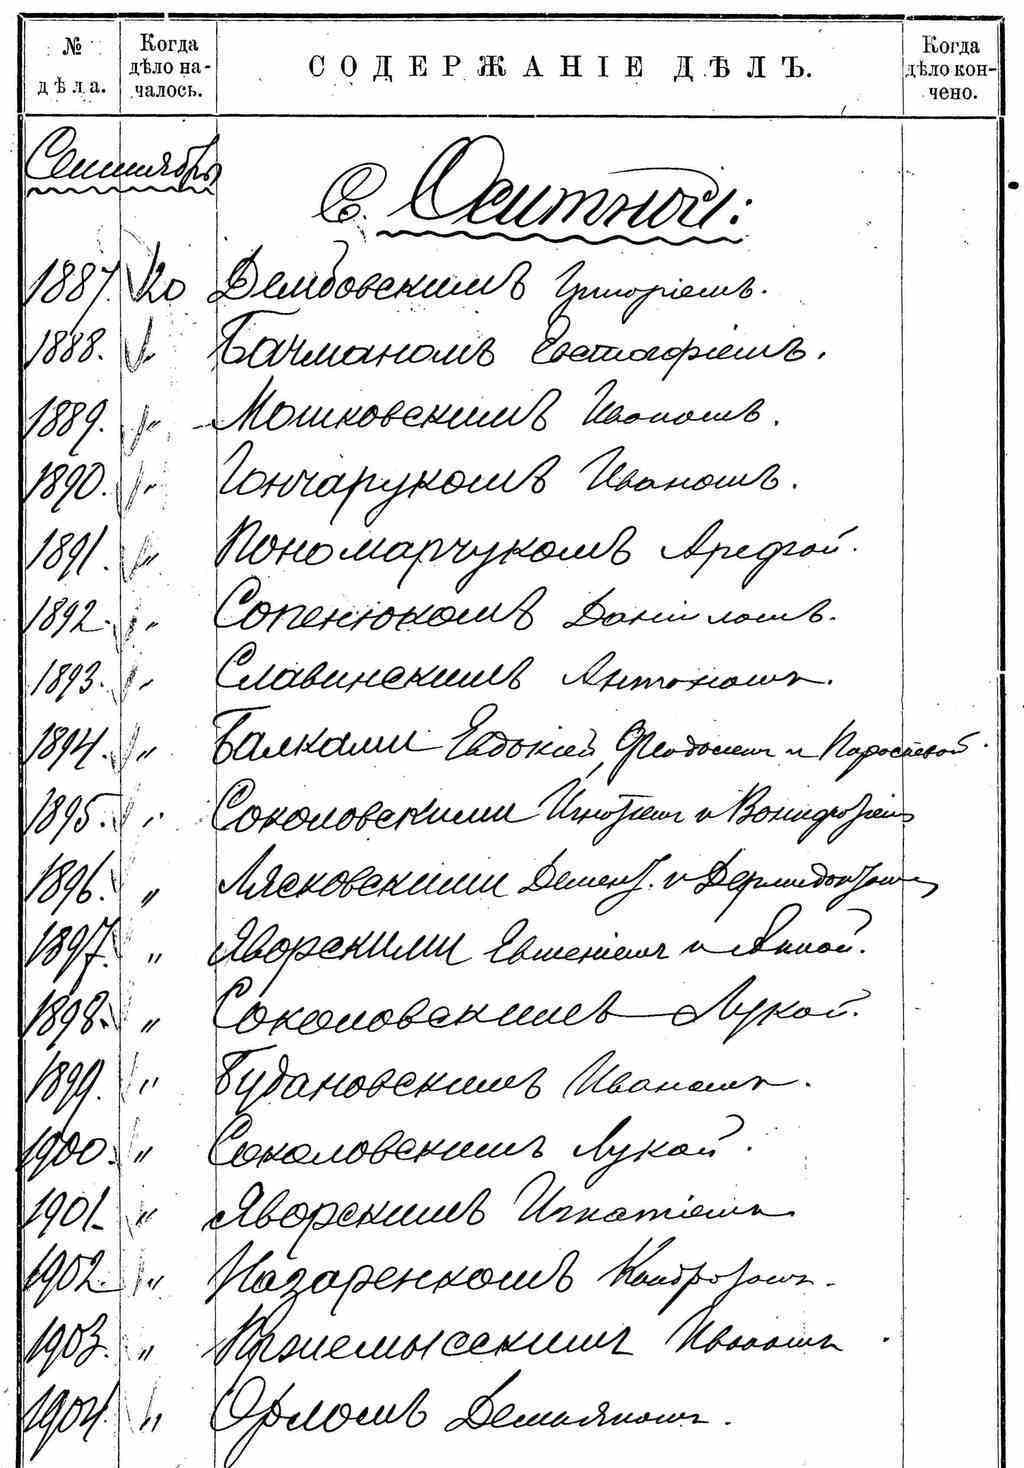 № дѣла. Когда дѣло началось. СОДЕРЖАНІЕ ДѢЛЪ. Когда дѣло кончено.
Сентябрь
С. Оситной:
1887. 20 Дембовскимъ Григоріемъ.
1888. " Бачманомъ Евстафіемъ.
1889. " Мошковскимъ Иваномъ.
1890. " Гончарукомъ Иваномъ.
1891. " Пономарчукомъ Арефой.
1892. " Сопенюкомъ Даніиломъ.
1893. " Славинскимъ Антономъ.
1894. " Балками Евдокіей, Феодосіем и Параскевой.
1895. " Соколовскими Игнатіем и Вонифатіем
1896. " Лясковскими Демент. и Дермидонтом
1897. " Яворскими Евгеніемъ и Анной.
1898. " Соколовскимъ Лукой.
1899. " Будановскимъ Иваномъ.
1900. " Соколовскимъ Лукой.
1901. " Яворскимъ Игнатіемъ
1902. " Назаренкомъ Кондратомъ.
1903. " Пржемысскимъ Иваномъ
1904. " Орломъ Демьяномъ.